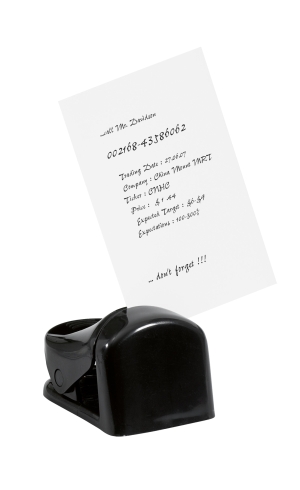 ...call Mr. Davidson
002168-43586062
Trading Date : 27.06.07
Company : China Mount MRT
Ticker : CNHC
Price : $ 1.44
Expected Target : $6-$9
Expectations : 100-300%
... don't forget !!!